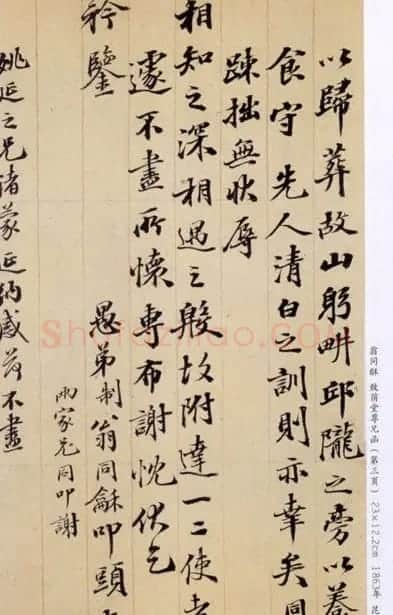 以歸葬故山躬畊邱隴之旁以養
食守先人清白之訓則亦幸矣同
踈拙無狀辱
相知之深相遇之殷故附達一二使者
遽不盡所懷專布謝忱伏乞
衿鑒
愚弟制翁同龢叩頭
兩家兄同叩謝
姚廷之兄諸蒙延納感荷不盡
翁同龢 致荫堂尊兄函（第三頁）23×12.2cm 1863年